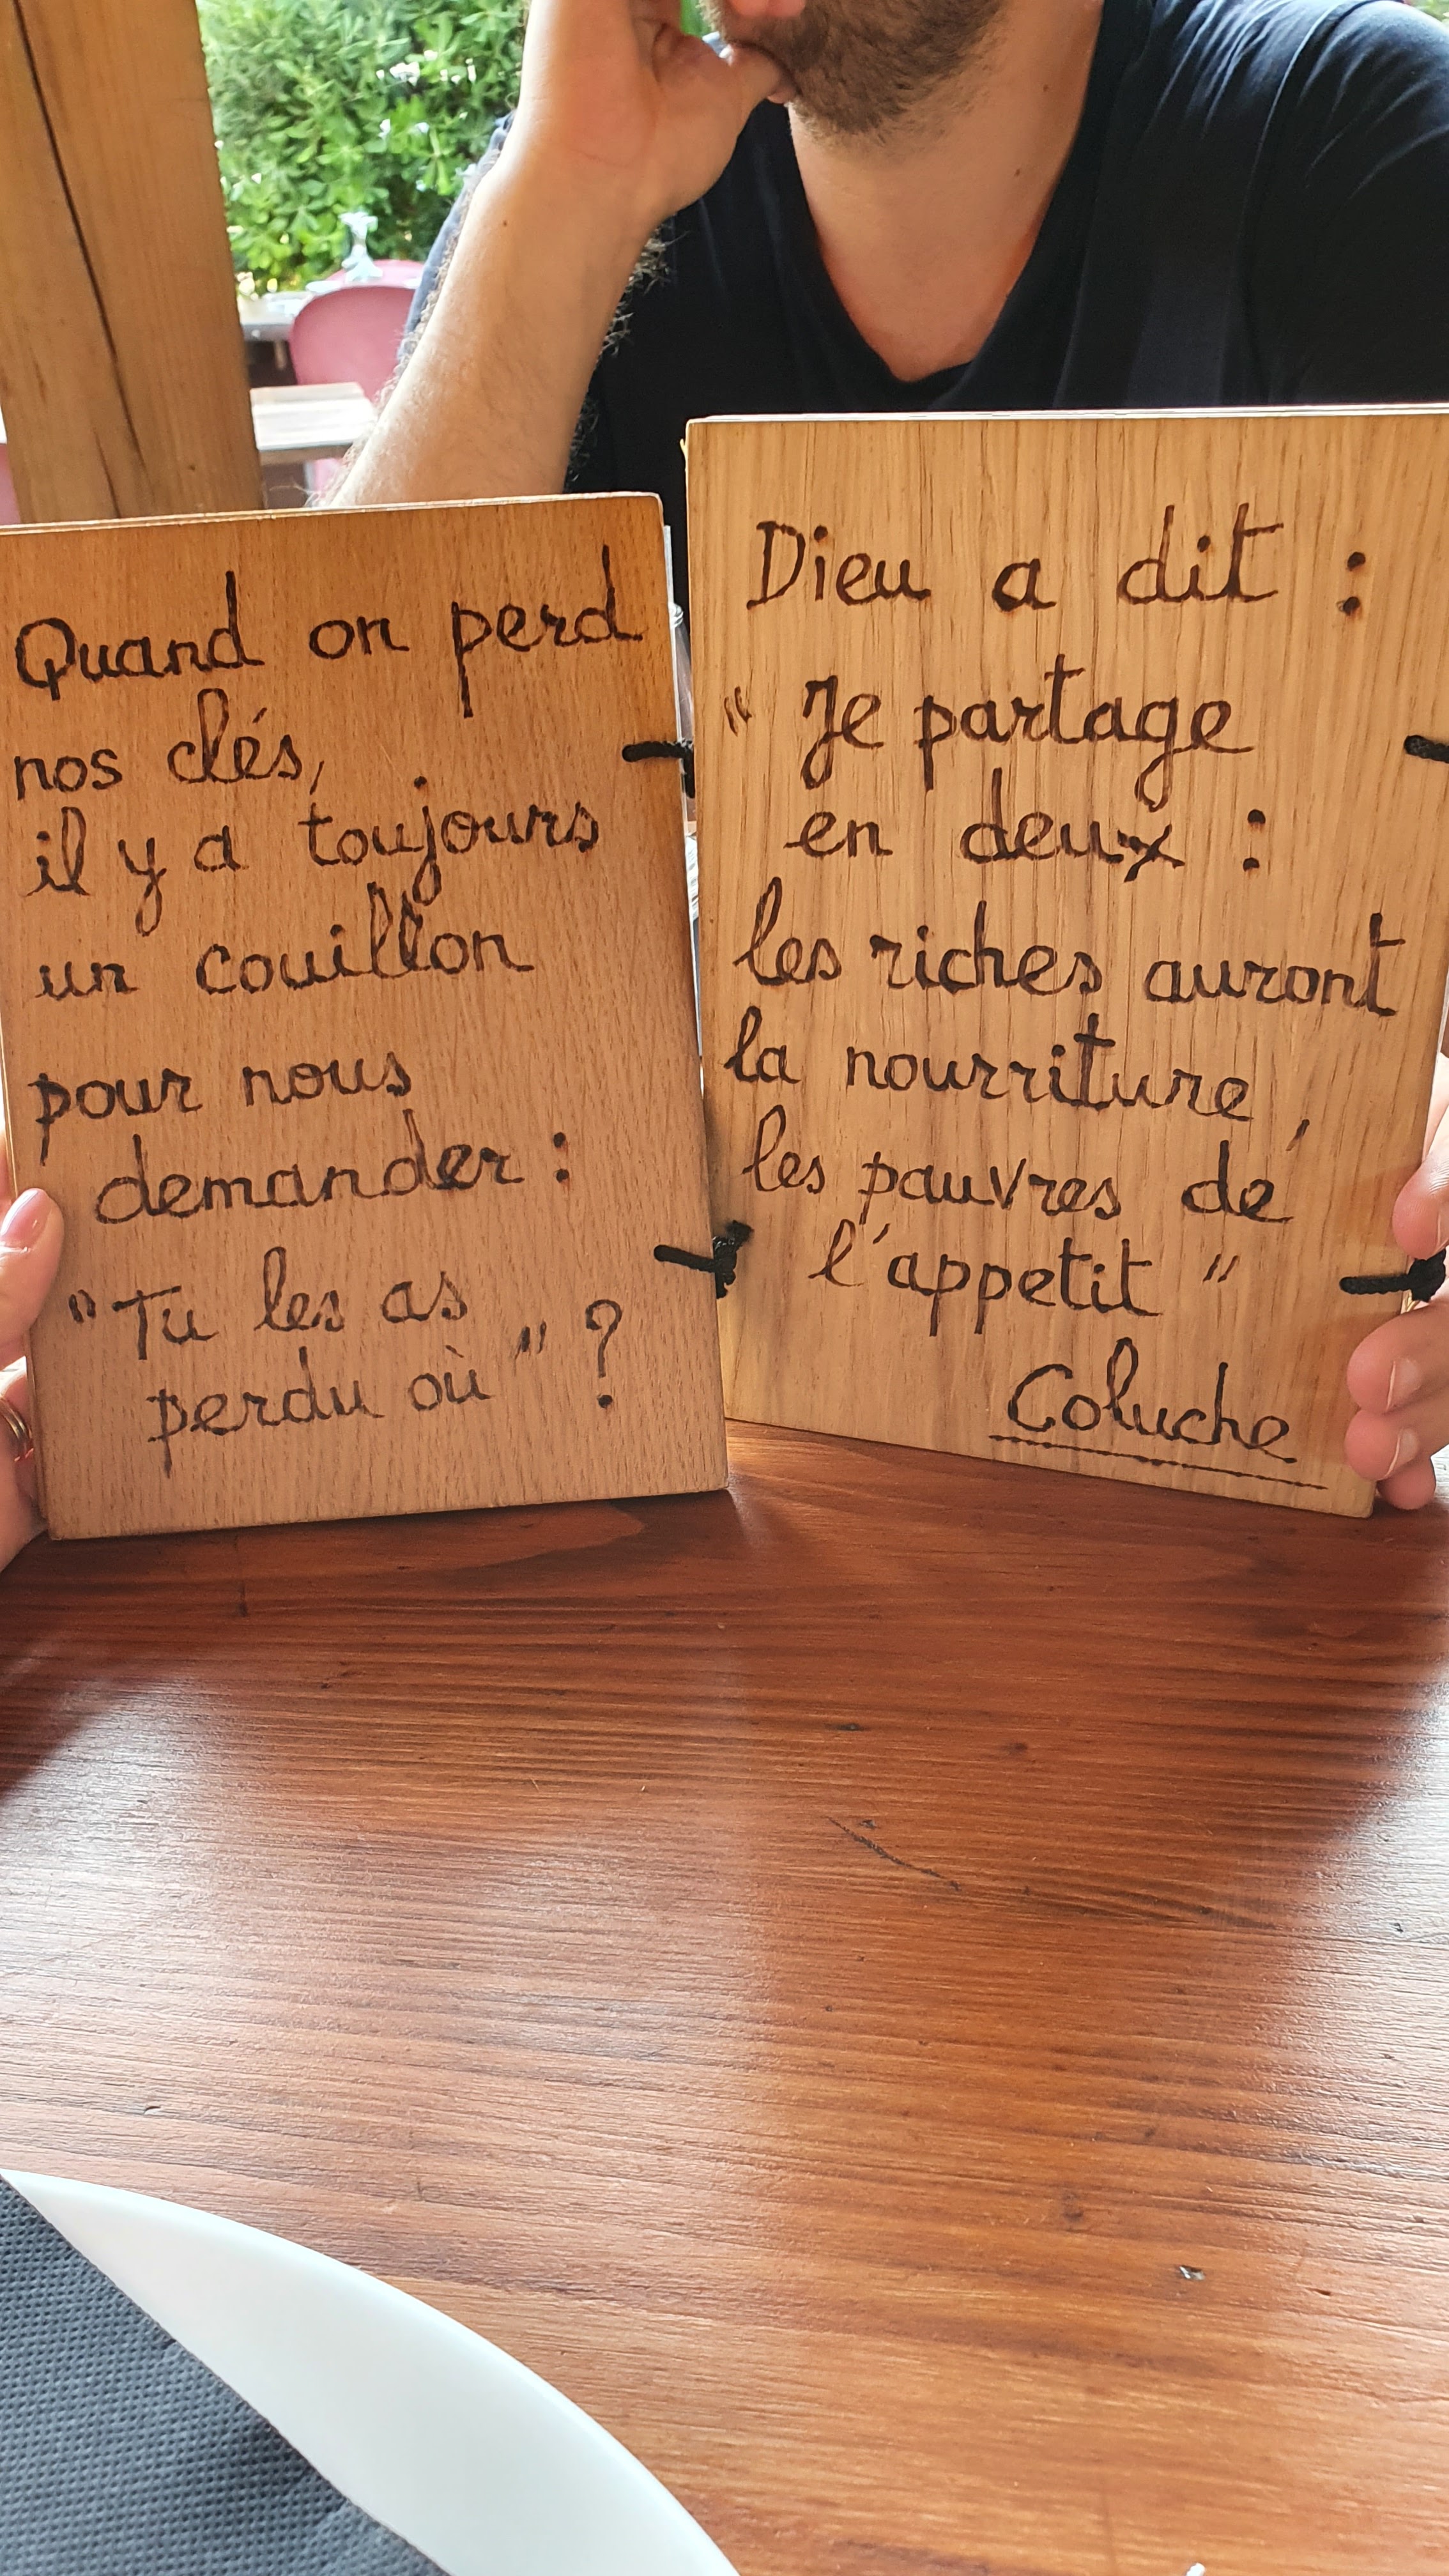 Quand on perd
nos clés,
il y a toujours
un couillon
pour nous
demander :
"Tu les as
perdu où" ?
Dieu a dit :
"Je partage
en deux :
les riches auront
la nourriture,
les pauvres de
l'appetit"
Coluche